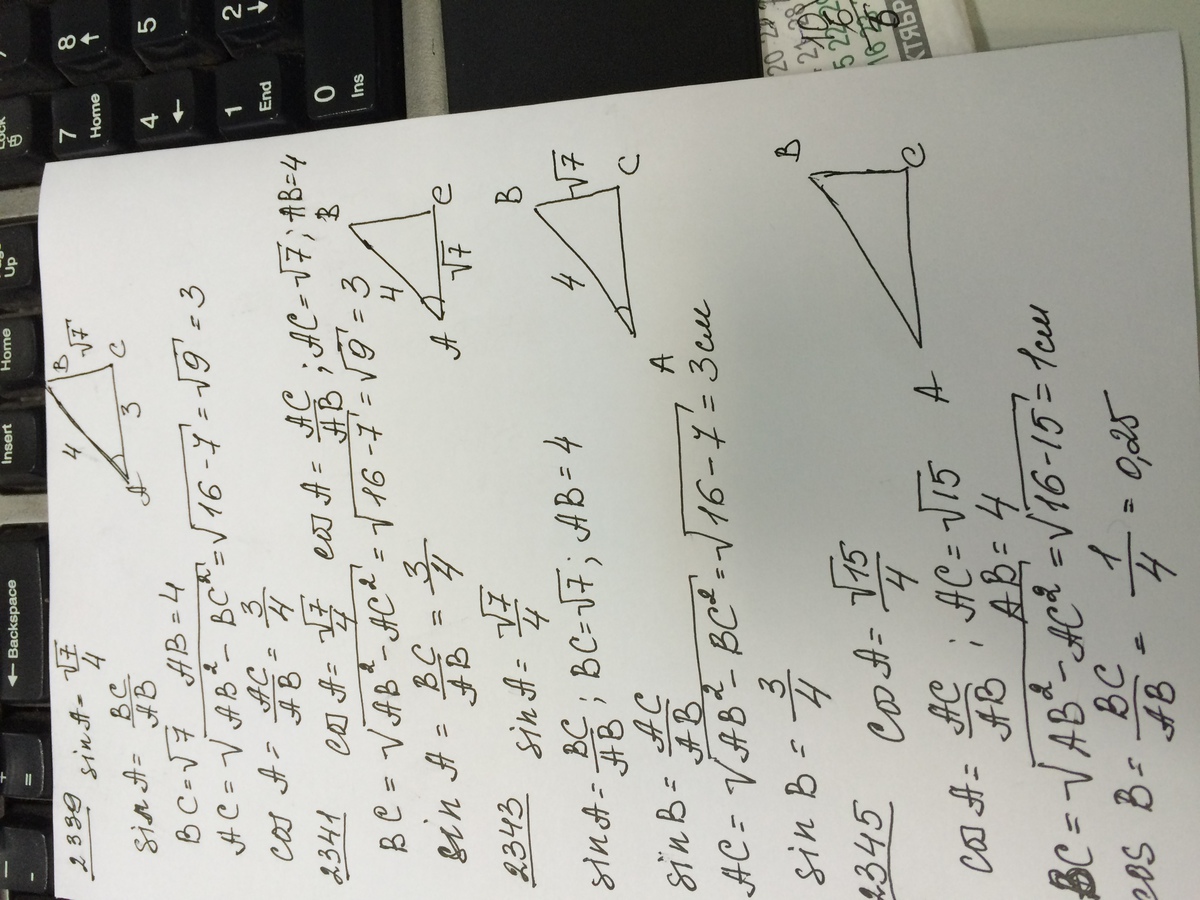 2339 sin A = √7/4
sin A = BC/AB
BC = √7 AB = 4
AC = √AB² - BC² = √16 - 7 = √9 = 3
cos A = AC/AB = 3/4
4 B √7
A 3 C
2341 cos A = √7/4 cos A = AC/AB ; AC = √7 ; AB = 4
BC = √AB² - AC² = √16 - 7 = √9 = 3
sin A = BC/AB = 3/4
4 B
A √7 C
2343 sin A = √7/4
sin A = BC/AB ; BC = √7 ; AB = 4
sin B = AC/AB
AC = √AB² - BC² = √16 - 7 = 3 см
sin B = 3/4
4 B √7
A C
2345 cos A = √15/4
cos A = AC/AB ; AC = √15
AB = 4
BC = √AB² - AC² = √16 - 15 = 1 см
cos B = BC/AB = 1/4 = 0,25
B
A C
← Backspace
Insert
Home
Up
7 Home
8 ↑
4 ←
5
1 End
2 ↓
0 Ins
+ =
- -